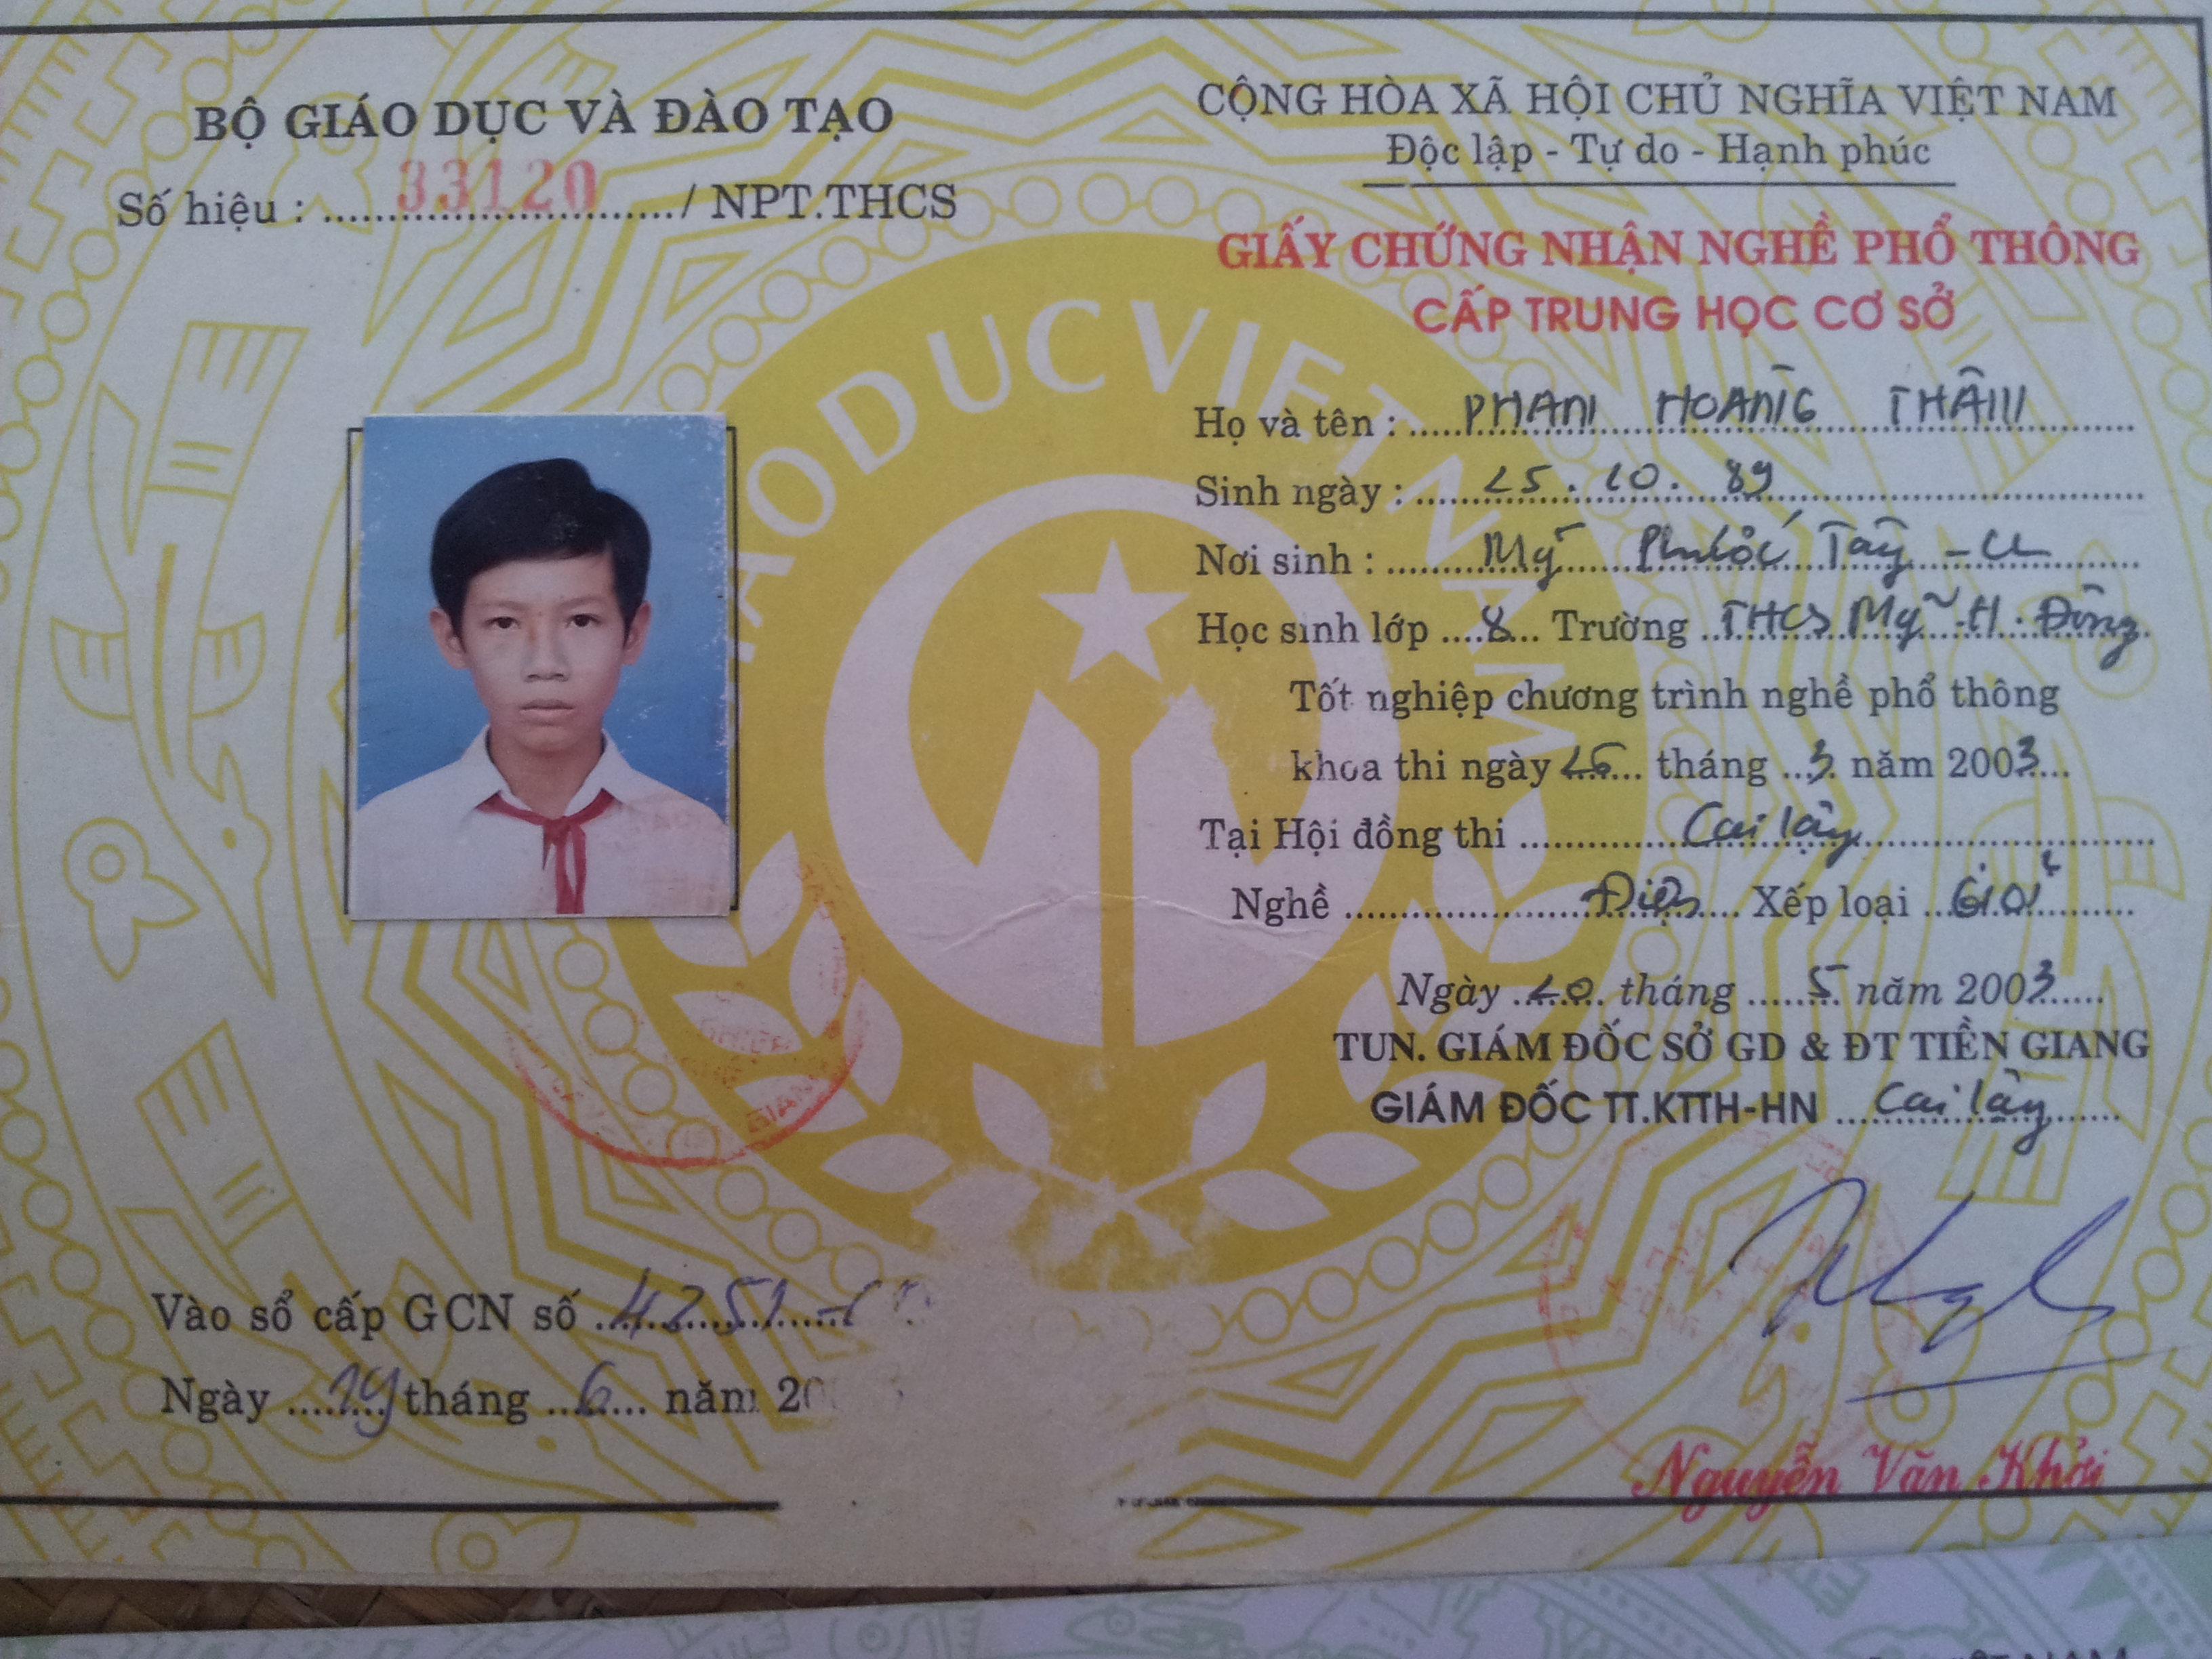 BỘ GIÁO DỤC VÀ ĐÀO TẠO
Số hiệu : 33120 / NPT.THCS
Vào sổ cấp GCN số
Ngày tháng 6 năm 20
CỘNG HÒA XÃ HỘI CHỦ NGHĨA VIỆT NAM
Độc lập - Tự do - Hạnh phúc
GIẤY CHỨNG NHẬN NGHỀ PHỔ THÔNG
CẤP TRUNG HỌC CƠ SỞ
Họ và tên : PHẠM HOÀNG THÂM
Sinh ngày : 25.10.89
Nơi sinh : Mỹ Phước Tây - CL
Học sinh lớp 8 Trường THCS Mỹ H. Đông
Tốt nghiệp chương trình nghề phổ thông
khoa thi ngày 26 tháng 3 năm 2003
Tại Hội đồng thi Cai lậy
Nghề Điện Xếp loại Giỏi
Ngày 20 tháng 5 năm 2003
TUN. GIÁM ĐỐC SỞ GD & ĐT TIỀN GIANG
GIÁM ĐỐC TT.KTTH-HN Cai lậy
Nguyễn Văn Khởi
GIAODUCVIETNAM